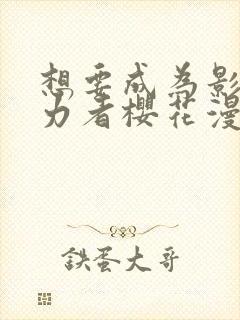 想要成为影
力者樱花漫
鉄蛋大哥